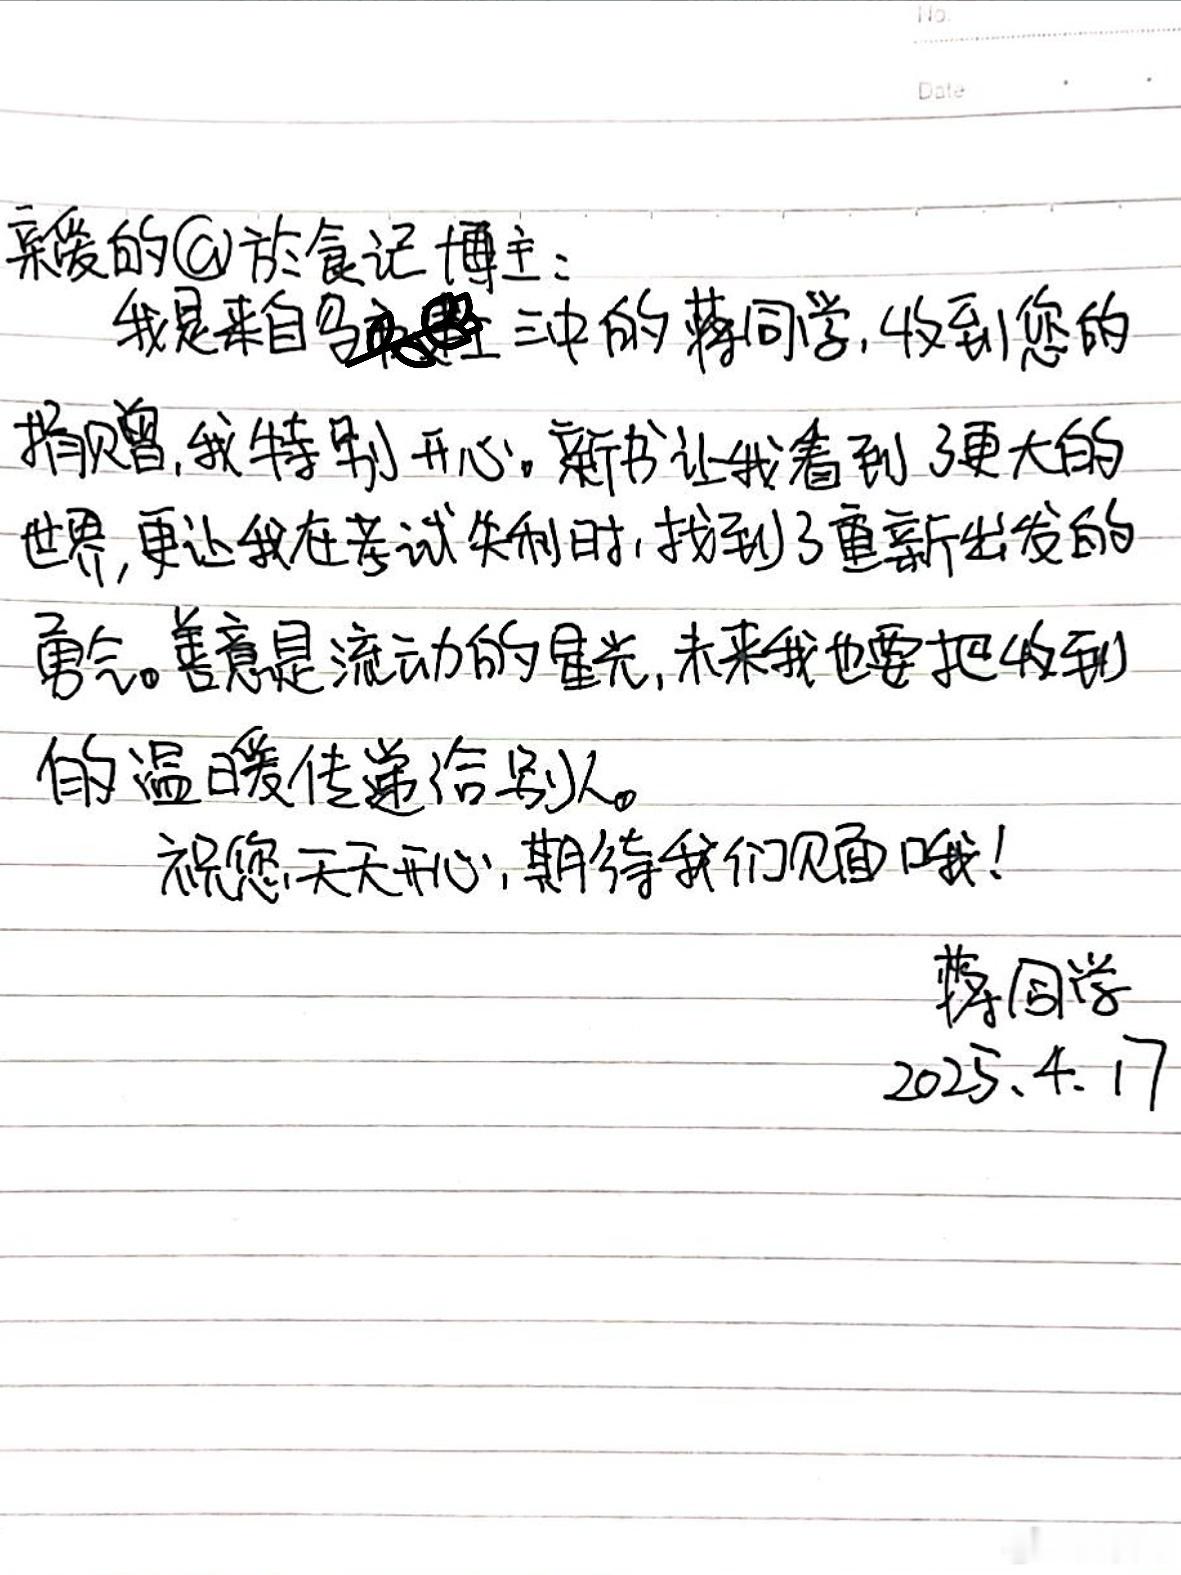 No.
Date
亲爱的@於食记博主：
我是来自马三中的蒋同学,收到您的
捐赠,我特别开心。新书让我看到了更大的
世界,更让我在考试失利时,找到了重新出发的
勇气。善意是流动的星光,未来我也要把收到
的温暖传递给别人。
祝您天天开心,期待我们见面哦!
蒋同学
2025.4.17